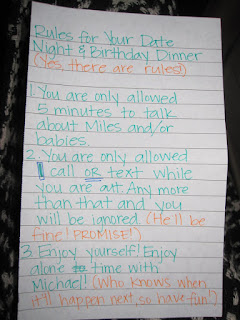 Rules for Your Date
Night & Birthday Dinner
(Yes, there are rules!)
1. You are only allowed
5 minutes to talk
about Miles and/or
babies.
2. You are only allowed
1 call OR text while
you are out. Any more
than that and you
will be ignored. (He'll be
fine! PROMISE!)
3. Enjoy yourself! Enjoy
alone to time with
Michael! (Who knows when
it'll happen next, so have fun!)